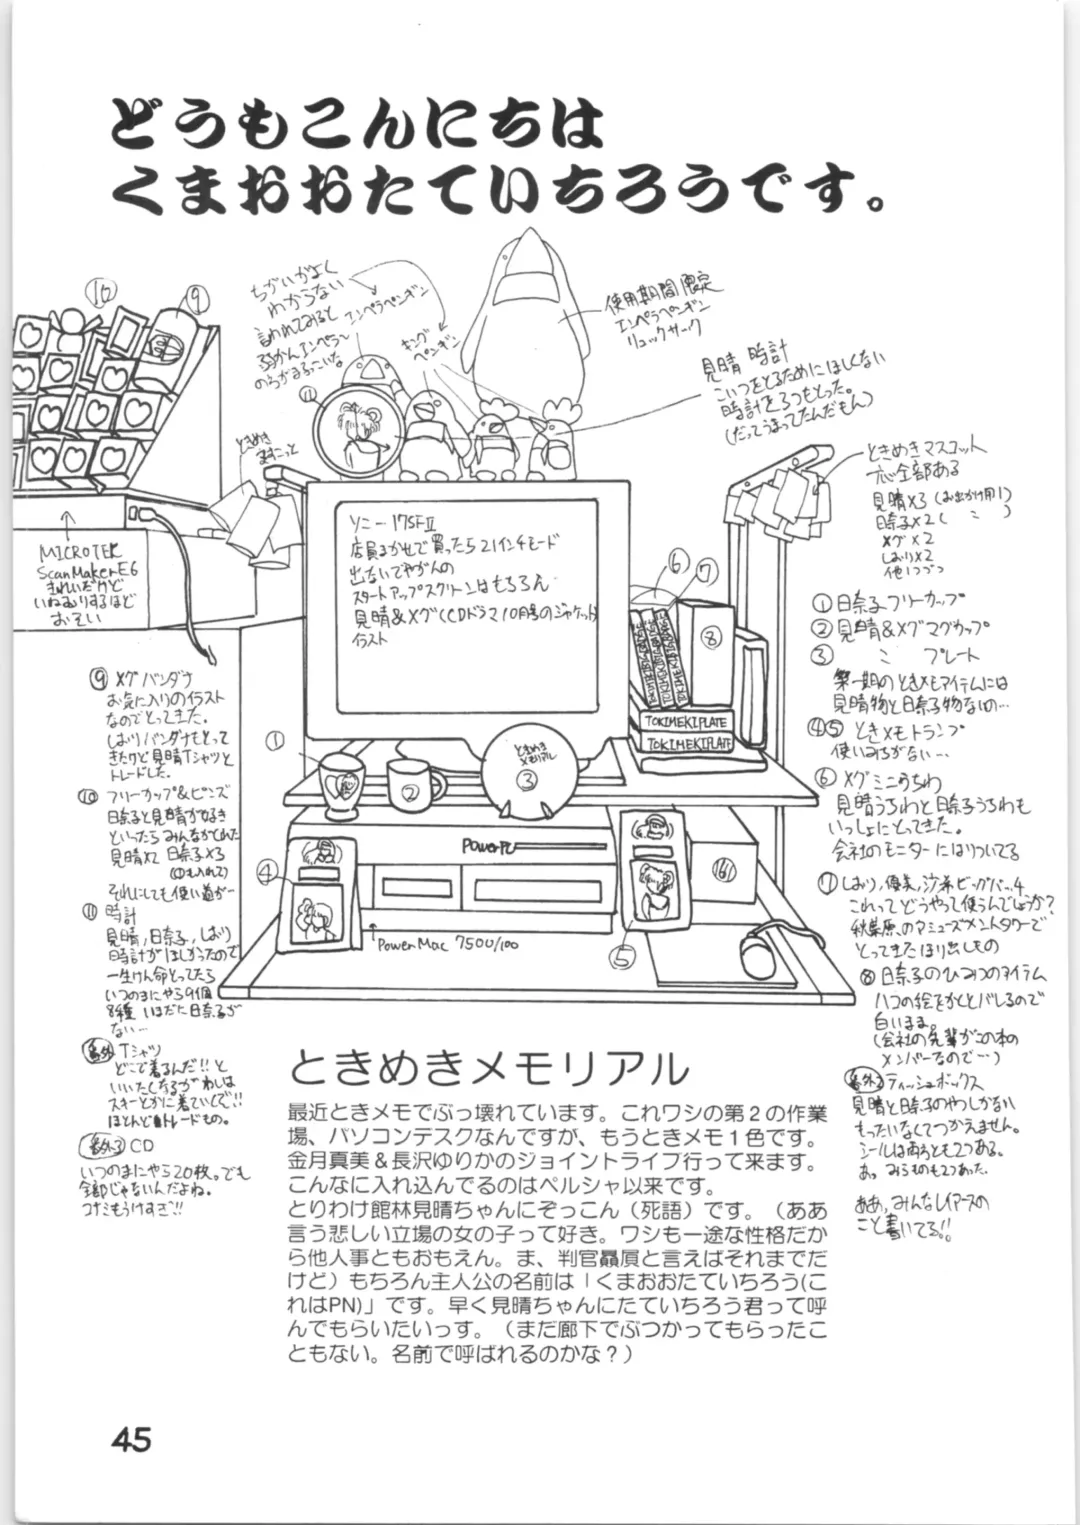 どうもこんにちは
くまおおたていちろうです。
⑩
⑨
ちがいがよく
わからない
言われてみると
若かんエンペラー
のらがまるっこいな
エンペラペンギン
キング
ペンギン
使用期間限定
エンペラペンギン
リュックサック
見晴 時計
こいつをとるためにほしくない
時計を3つもとった。
(だってうまってたんだもん)
⑪
ときめき
ますこっと
ときめきマスコット
応全部ある
見晴×3 (お出かけ用1)
日奈子×2 ( ミ )
メグ×2
しおり×2
他1つづつ
MICROTEK
ScanMaker E6
きれいだけど
いねむりするほど
おそい
ソニー 17SFⅡ
店員まかせで買ったら21インチモード
出ないでやがんの
スタートアップスクリーンはもちろん
見晴&メグ(CDドラマ10月号のジャケット)
イラスト
⑥
⑦
⑧
TOKIMEKIPLATE
TOKIMEKIPLATE
①
②
ときめき
メモリアル
③
④
⑤
PowerPC
PowerMac 7500/100
①日奈子フリーカップ
②見晴&メグマグカップ
③ ミ プレート
第一期のときメモアイテムには
見晴物と日奈子物なしの…
④⑤ ときメモトランプ
使いみちがない…
⑥ メグミニうちわ
見晴うちわと日奈子うちわも
いっしょにとってきた。
会社のモニターにはりついてる
⑦しおり,優美,沙希ビッグバッヂ
これってどうやって使うんでしょうか?
秋葉原のアミューズメントタワーで
とってきたほり出しもの
⑧ 日奈子のひみつのアイテム
ハコの絵をかくとバレるので
白いまま。
(会社の先輩がこの本の
メンバーなので…)
番外2 ティッシュボックス
見晴と日奈子のやつしかない
もったいなくてつかえません。
シールはあうとも2つある。
あ。みらものも2つあった。
ああ、みんなレイアースの
こと書いてる!!
⑨ メグバンダナ
お気に入りのイラスト
なのでとってきた。
しおりバンダナもとって
きたけど見晴Tシャツと
トレードした。
⑩ フリーカップ&ピンズ
日奈子と見晴が好き
といったらみんながくれた
見晴×2 日奈子×3
それにしても使い道がー
⑪ 時計
見晴,日奈子,しおり
時計がほしかったので
一生けん命とってたら
いつのまにやら9個
8種 いまだに日奈子が
ない…
番外 Tシャツ
どこで着るんだ!!と
いいたくなるがわしは
スキーとかに着ていくで!!
ほとんどトレードもの。
番外3 CD
いつのまにやら20枚。でも
全部じゃないんだよね。
コナミもうけすぎ!!
ときめきメモリアル
最近ときメモでぶっ壊れています。これワシの第2の作業
場、パソコンデスクなんですが、もうときメモ1色です。
金月真美&長沢ゆりかのジョイントライブ行って来ます。
こんなに入れ込んでるのはペルシャ以来です。
とりわけ館林見晴ちゃんにぞっこん(死語)です。(ああ
言う悲しい立場の女の子って好き。ワシも一途な性格だか
ら他人事ともおもえん。ま、判官贔屓と言えばそれまでだ
けど)もちろん主人公の名前は「くまおおたていちろう(こ
れはPN)」です。早く見晴ちゃんにたていちろう君って呼
んでもらいたいっす。(まだ廊下でぶつかってもらったこ
ともない。名前で呼ばれるのかな?)
45